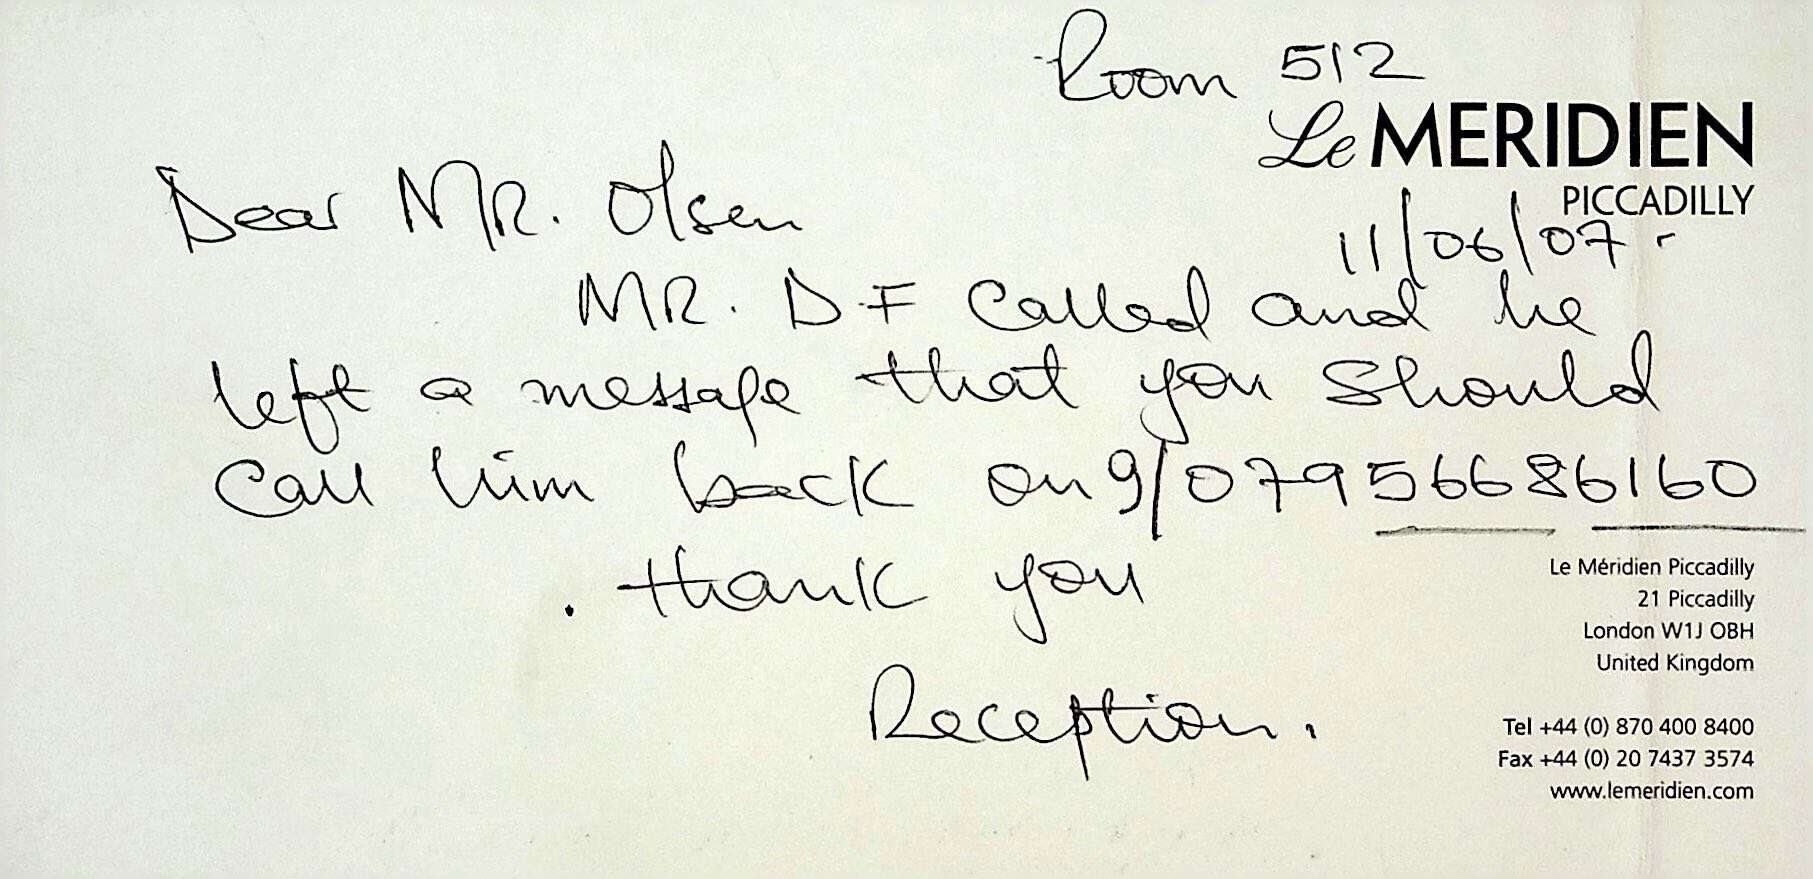 Room 512
Le MERIDIEN
PICCADILLY
11/06/07.
Dear MR. Olsen
MR. D.F Called and he
left a message that you should
Call him back on 9/07956686160
. thank you
Reception.
Le Méridien Piccadilly
21 Piccadilly
London W1J OBH
United Kingdom
Tel +44 (0) 870 400 8400
Fax +44 (0) 20 7437 3574
www.lemeridien.com